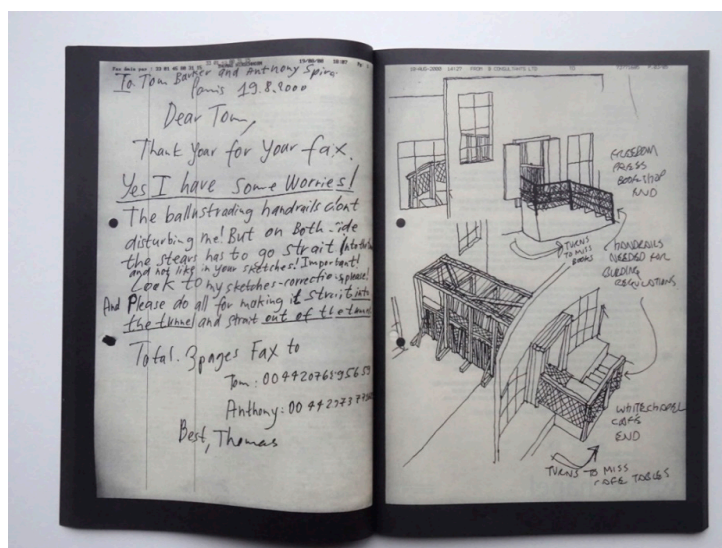 To Tom Barker and Anthony Spira
Paris 19.8.2000
Dear Tom,
Thank your for your fax.
Yes I have some Worries!
The ballustrading handrails dont
disturbing me! But on Both
the stears has to go strait into the
and not like in your sketches! Important!
Look to my sketches-correction please!
And Please do all for making it strait into
the tunnel and strait out of the tunnel
Total. 3 pages Fax to
Tom:
Anthony:
Best, Thomas
FROM B CONSULTANTS LTD
FREEDOM
PRESS
BOOKSHOP
END
TURNS
TO MISS
BOOKS
HANDRAILS
NEEDED FOR
BUILDING
REGULATIONS
WHITECHAPEL
CAFE
END
TURNS TO MISS
CAFE TABLES